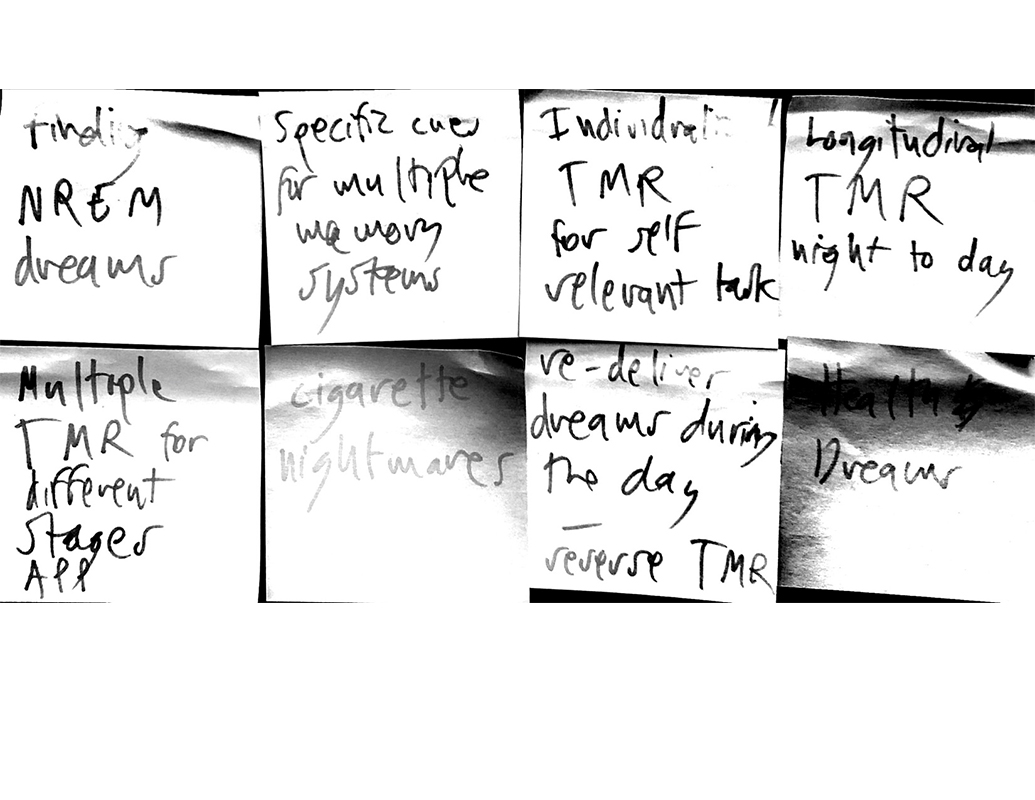 Finding
NREM
dreams
Specific cues
for multiple
memory
systems
Individual
TMR
for self
relevant task
Longitudinal
TMR
night to day
Multiple
TMR for
different
stages
APP
cigarette
nightmares
re-deliver
dreams during
the day
—
reverse TMR
Healthy
Dreams